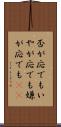 否が応でもい
やが応でも嫌
が応でも